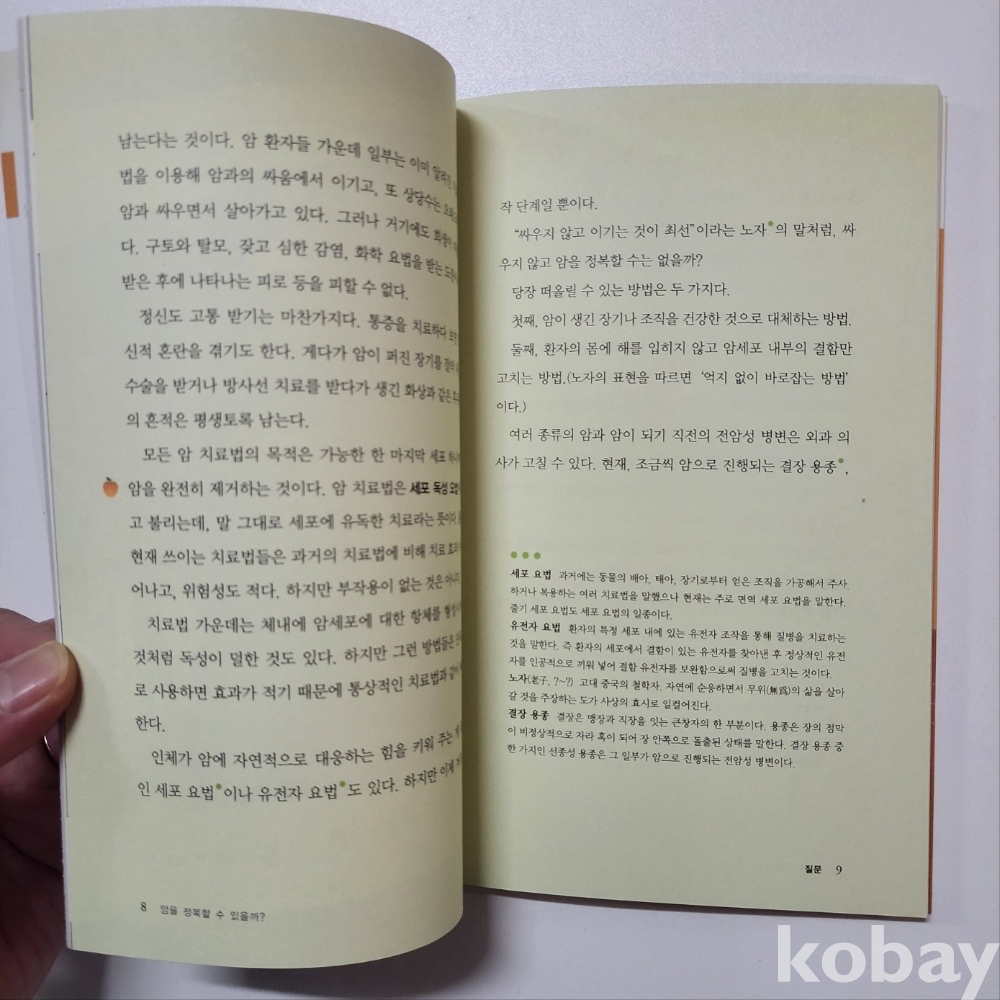 남는다는 것이다. 암 환자들 가운데 일부는 이미 알려진
법을 이용해 암과의 싸움에서 이기고, 또 상당수는
암과 싸우면서 살아가고 있다. 그러나 거기에도 희생이
다. 구토와 탈모, 잦고 심한 감염, 화학 요법을 받는
받은 후에 나타나는 피로 등을 피할 수 없다.
정신도 고통 받기는 마찬가지다. 통증을 치료하다
신적 혼란을 겪기도 한다. 게다가 암이 퍼진 장기를
수술을 받거나 방사선 치료를 받다가 생긴 화상과 같은
의 흔적은 평생토록 남는다.
모든 암 치료법의 목적은 가능한 한 마지막 세포
암을 완전히 제거하는 것이다. 암 치료법은 세포 독성 요법
고 불리는데, 말 그대로 세포에 유독한 치료라는 뜻이다.
현재 쓰이는 치료법들은 과거의 치료법에 비해 치료
어나고, 위험성도 적다. 하지만 부작용이 없는 것은 아니다.
치료법 가운데는 체내에 암세포에 대한 항체를
것처럼 독성이 덜한 것도 있다. 하지만 그런 방법들은
로 사용하면 효과가 적기 때문에 통상적인 치료법과 같이
한다.
인체가 암에 자연적으로 대응하는 힘을 키워 주는
인 세포 요법이나 유전자 요법도 있다. 하지만 이제
8 암을 정복할 수 있을까?
작 단계일 뿐이다.
“싸우지 않고 이기는 것이 최선”이라는 노자의 말처럼, 싸
우지 않고 암을 정복할 수는 없을까?
당장 떠올릴 수 있는 방법은 두 가지다.
첫째, 암이 생긴 장기나 조직을 건강한 것으로 대체하는 방법.
둘째, 환자의 몸에 해를 입히지 않고 암세포 내부의 결함만
고치는 방법.(노자의 표현을 따르면 ‘억지 없이 바로잡는 방법’
이다.)
여러 종류의 암과 암이 되기 직전의 전암성 병변은 외과 의
사가 고칠 수 있다. 현재, 조금씩 암으로 진행되는 결장 용종,
세포 요법 과거에는 동물의 배아, 태아, 장기로부터 얻은 조직을 가공해서 주사.
하거나 복용하는 여러 치료법을 말했으나 현재는 주로 면역 세포 요법을 말한다.
줄기 세포 요법도 세포 요법의 일종이다.
유전자 요법 환자의 특정 세포 내에 있는 유전자 조작을 통해 질병을 치료하는
것을 말한다. 즉 환자의 세포에서 결함이 있는 유전자를 찾아낸 후 정상적인 유전
자를 인공적으로 끼워 넣어 결함 유전자를 보완함으로써 질병을 고치는 것이다.
노자(老子, ?~?) 고대 중국의 철학자. 자연에 순응하면서 무위(無爲)의 삶을 살아
갈 것을 주장하는 도가 사상의 효시로 일컬어진다.
결장 용종 결장은 맹장과 직장을 잇는 큰창자의 한 부분이다. 용종은 장의 점막
이 비정상적으로 자라 혹이 되어 장 안쪽으로 돌출된 상태를 말한다. 결장 용종 중
한 가지인 선종성 용종은 그 일부가 암으로 진행되는 전암성 병변이다.
질문 9
kobay